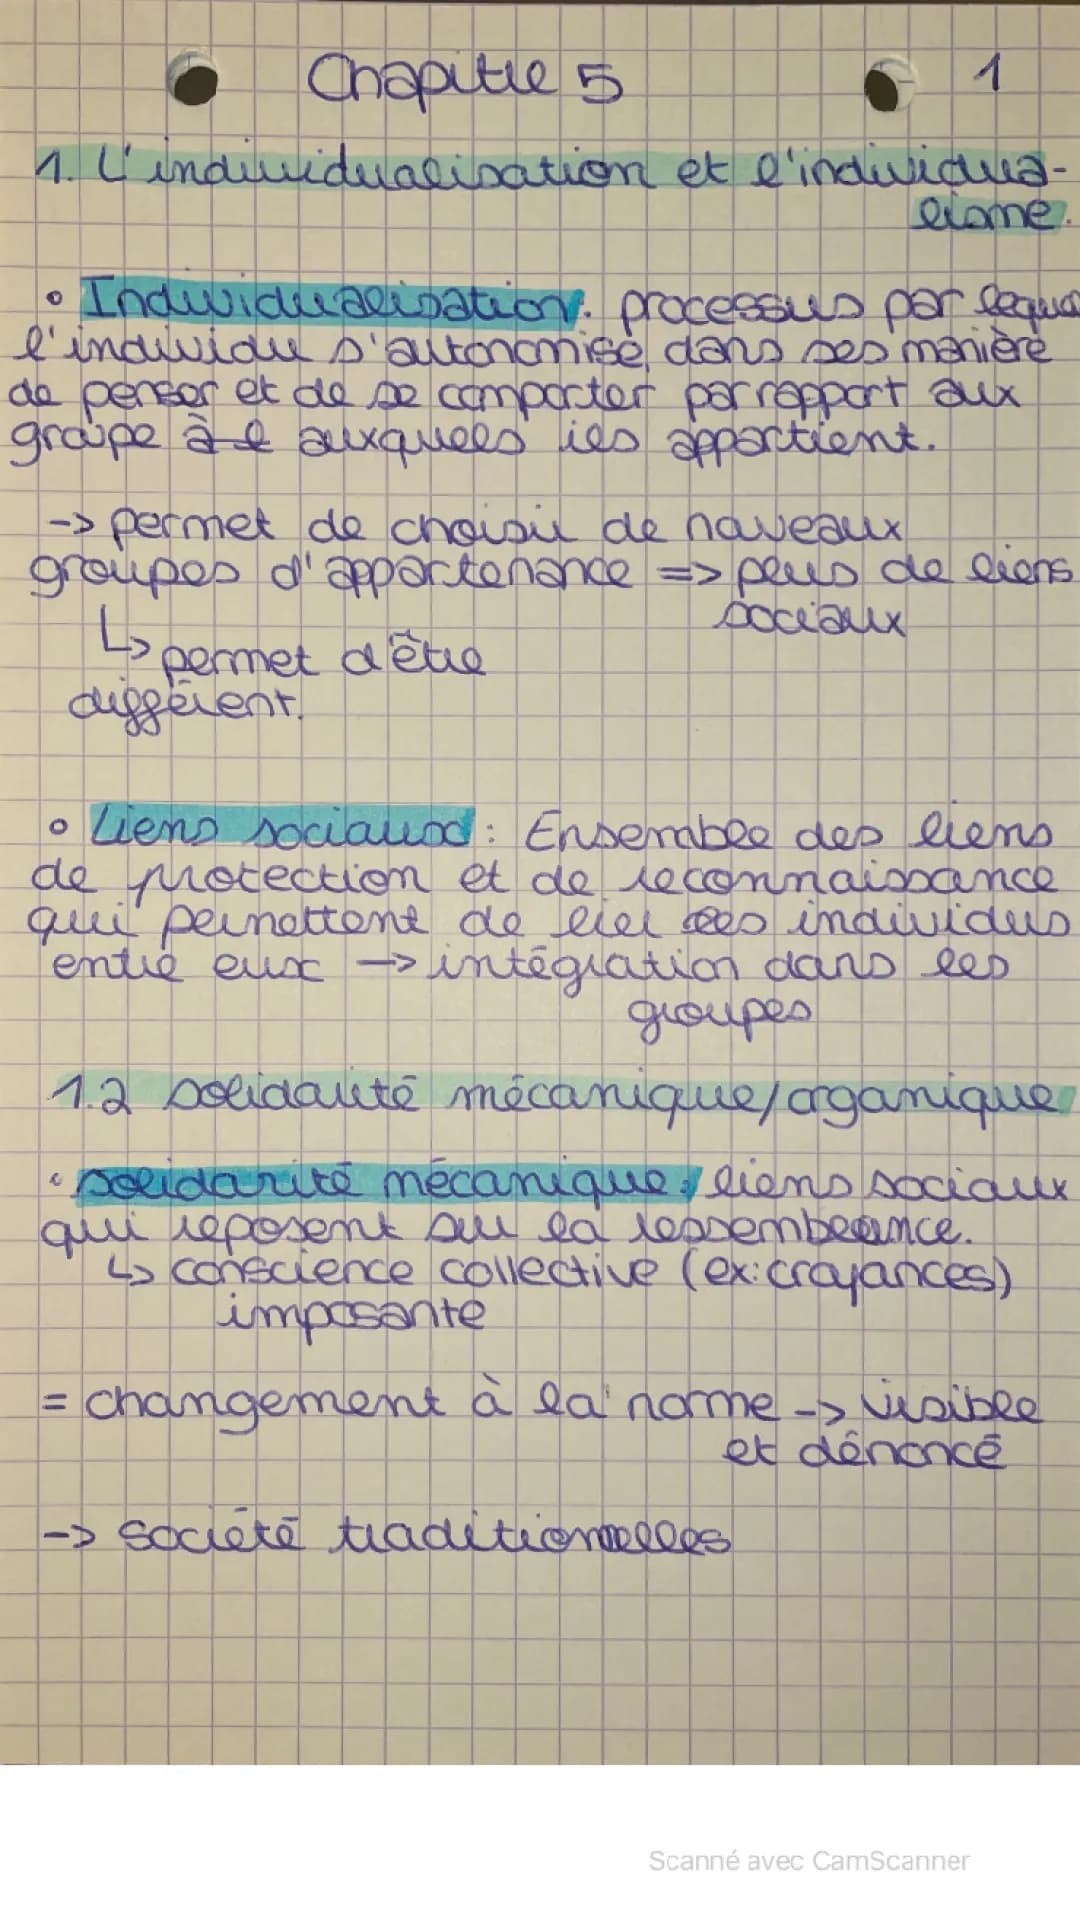 Chapitre 5
1
1. L'individualisation et l'individua-
lisme.
• Individualisation: processus par lequel
l'individu s'autonomise dans ses manière
de penser et de se comporter par rapport aux
groupe auxquels ils appartient.
-> permet de choisir de nouveaux
groupes d'appartenance => plus de liens
sociaux
↳ permet d'être
différent.
• Liens sociaux: Ensemble des liens
de protection et de reconnaissance
qui permettent de lier les individus
entre eux -> intégration dans les
groupes
1.2 solidarité mécanique/organique
• solidarité mécanique: liens sociaux
qui reposent sur la ressemblance.
↳ conscience collective (ex: croyances)
imposante
= changement à la norme -> visible
et dénoncé
-> société traditionnelles
Scanné avec CamScanner